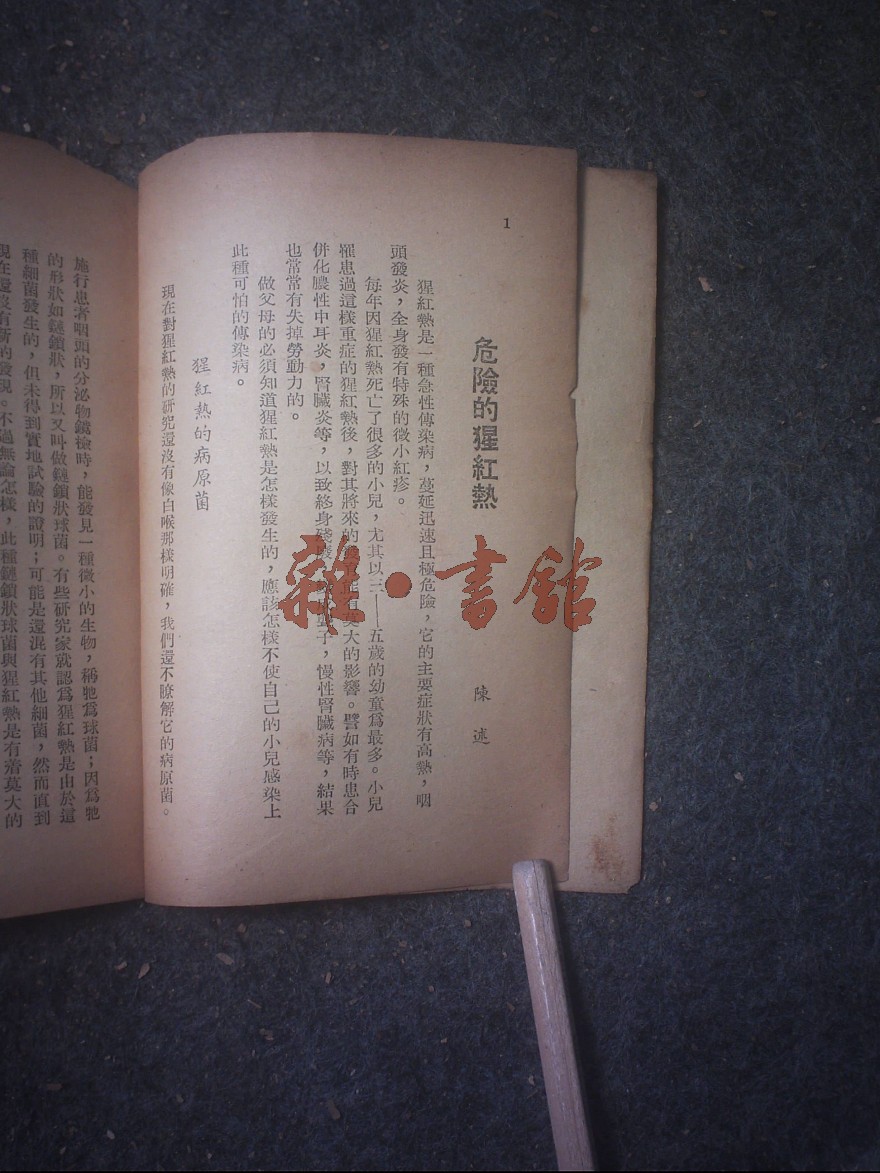 1
危險的猩紅熱
陳述
猩紅熱是一種急性傳染病，蔓延迅速且極危險，它的主要症狀有高熱，咽
頭發炎，全身發有特殊的微小紅疹。
每年因猩紅熱死亡了很多的小兒，尤其以三——五歲的幼童爲最多。小兒
罹患過這樣重症的猩紅熱後，對其將來的有莫大的影響。譬如有時患合
併化膿性中耳炎，腎臟炎等，以致終身殘廢子，慢性腎臟病等，結果
也常常有失掉勞動力的。
做父母的必須知道猩紅熱是怎樣發生的，應該怎樣不使自己的小兒感染上
此種可怕的傳染病。
猩紅熱的病原菌
現在對猩紅熱的研究還沒有像白喉那樣明確，我們還不瞭解它的病原菌。
施行患者咽頭的分泌物鏡檢時，能發見一種微小的生物，稱牠爲球菌；因爲牠
的形狀如鏈鎖狀，所以又叫做鏈鎖狀球菌。有些研究家就認爲猩紅熱是由於這
種細菌發生的，但未得到實地試驗的證明；可能是還混有其他細菌，然而直到
現在還沒有新的發現。不過無論怎樣，此種鏈鎖狀球菌與猩紅熱是有着莫大的
雜·書館